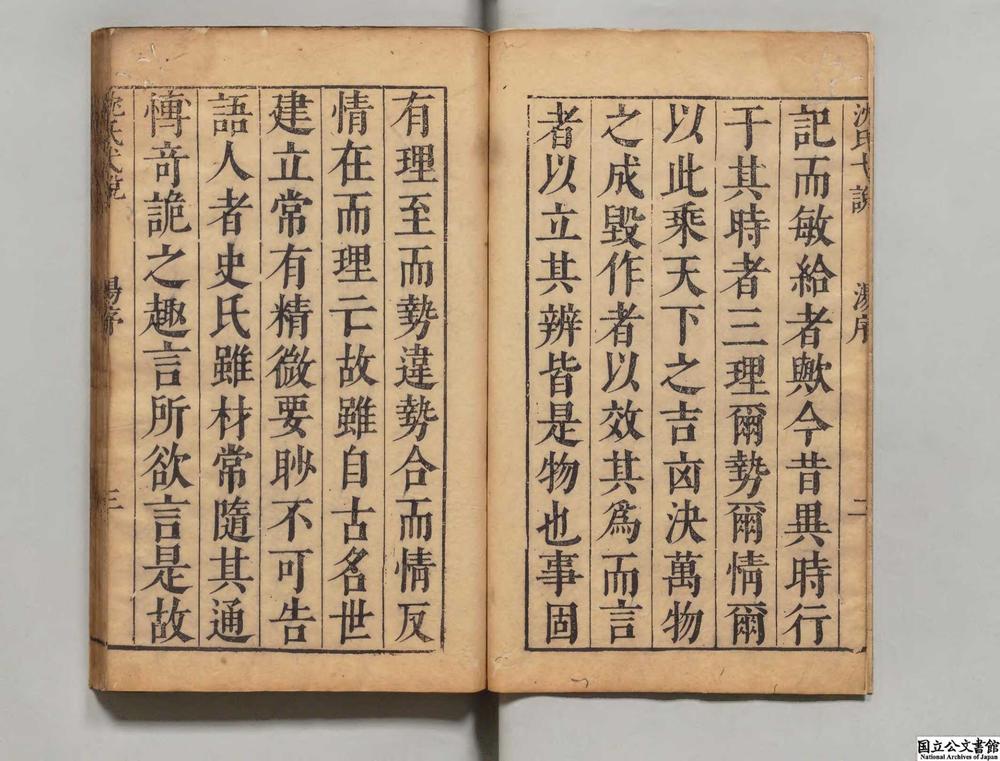 沈氏弋說　湯序　二
記而敏給者歟今昔異時行
于其時者三理爾勢爾情爾
以此乘天下之吉凶決萬物
之成毀作者以效其爲而言
者以立其辨皆是物也事固
有理至而勢違勢合而情反
情在而理亡故雖自古名世
建立常有精微要眇不可告
語人者史氏雖材常隨其通
愽奇詭之趣言所欲言是故
沈氏弋說　湯序　三
国立公文書館
National Archives of Japan